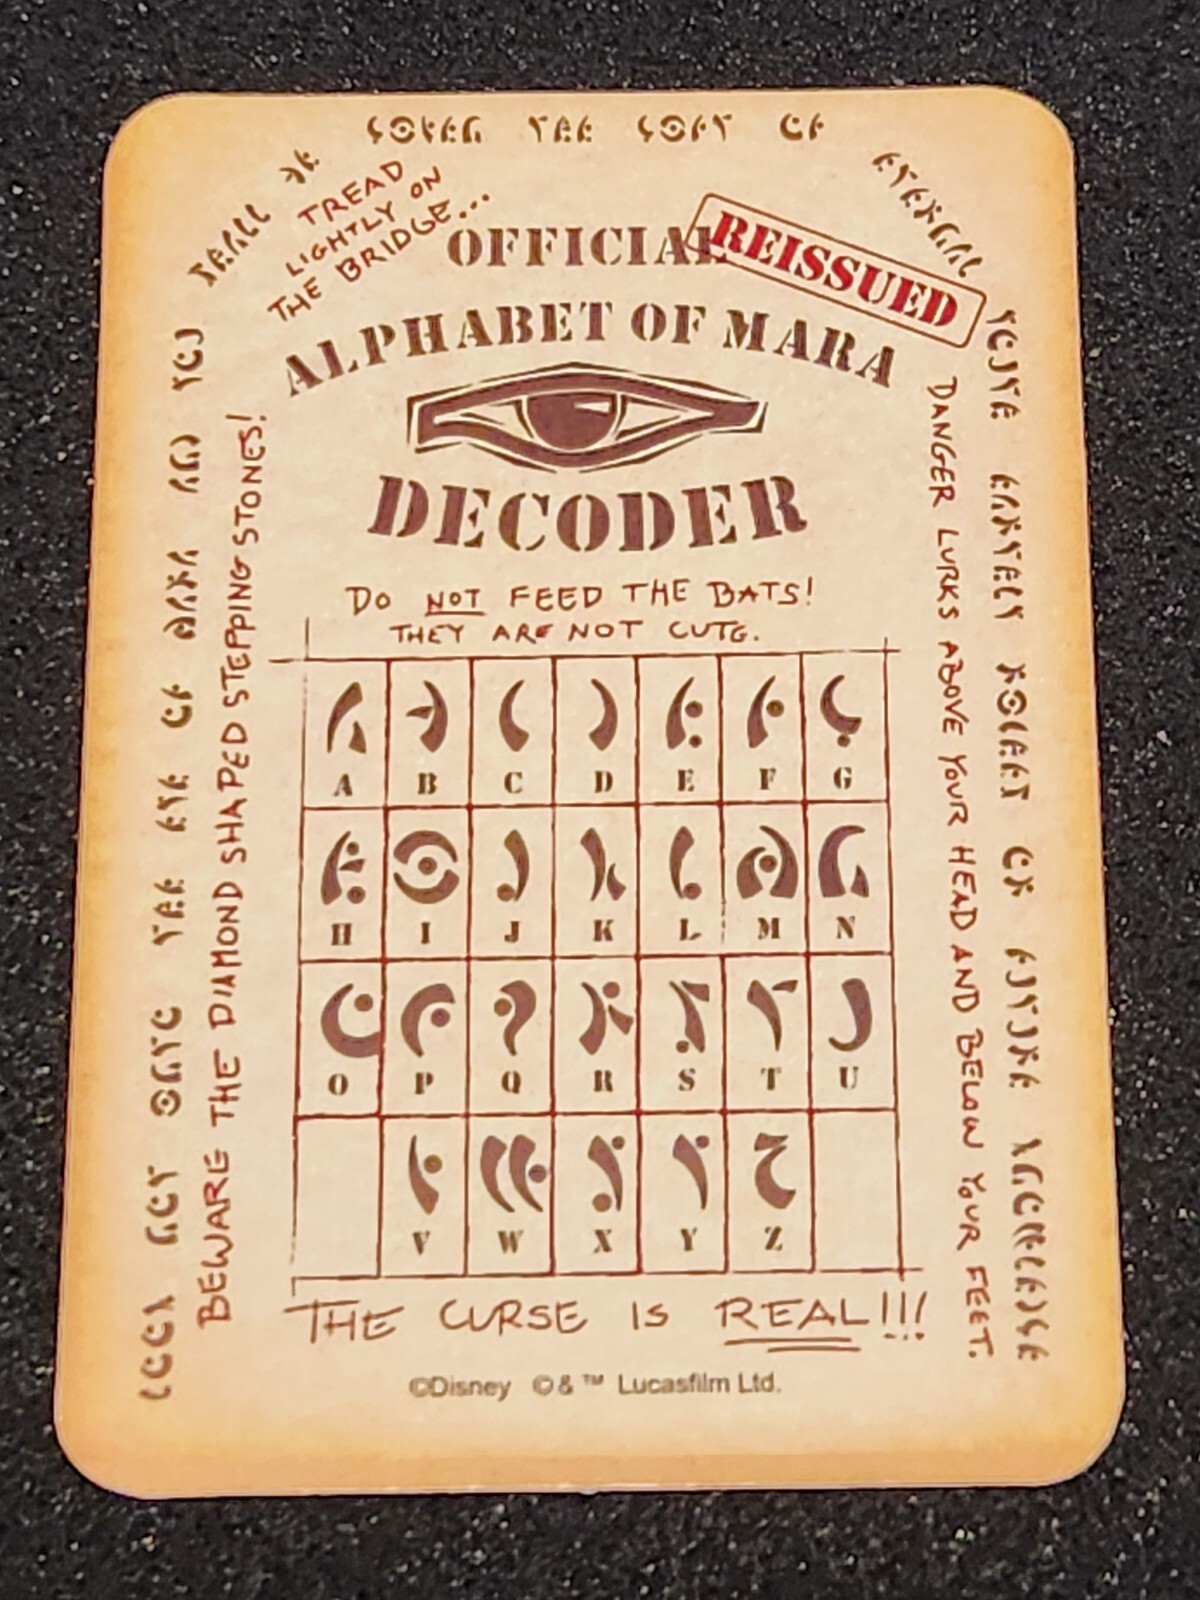 TREAD
LIGHTLY ON
THE BRIDGE...
OFFICIAL
REISSUED
ALPHABET OF MARA
DECODER
DO NOT FEED THE BATS!
THEY ARE NOT CUTE.
A B C D E F G
H I J K L M N
O P Q R S T U
V W X Y Z
THE CURSE IS REAL!!!
©Disney © & ™ Lucasfilm Ltd.
BEWARE THE DIAMOND SHAPED STEPPING STONES!
DANGER LURKS ABOVE YOUR HEAD AND BELOW YOUR FEET.